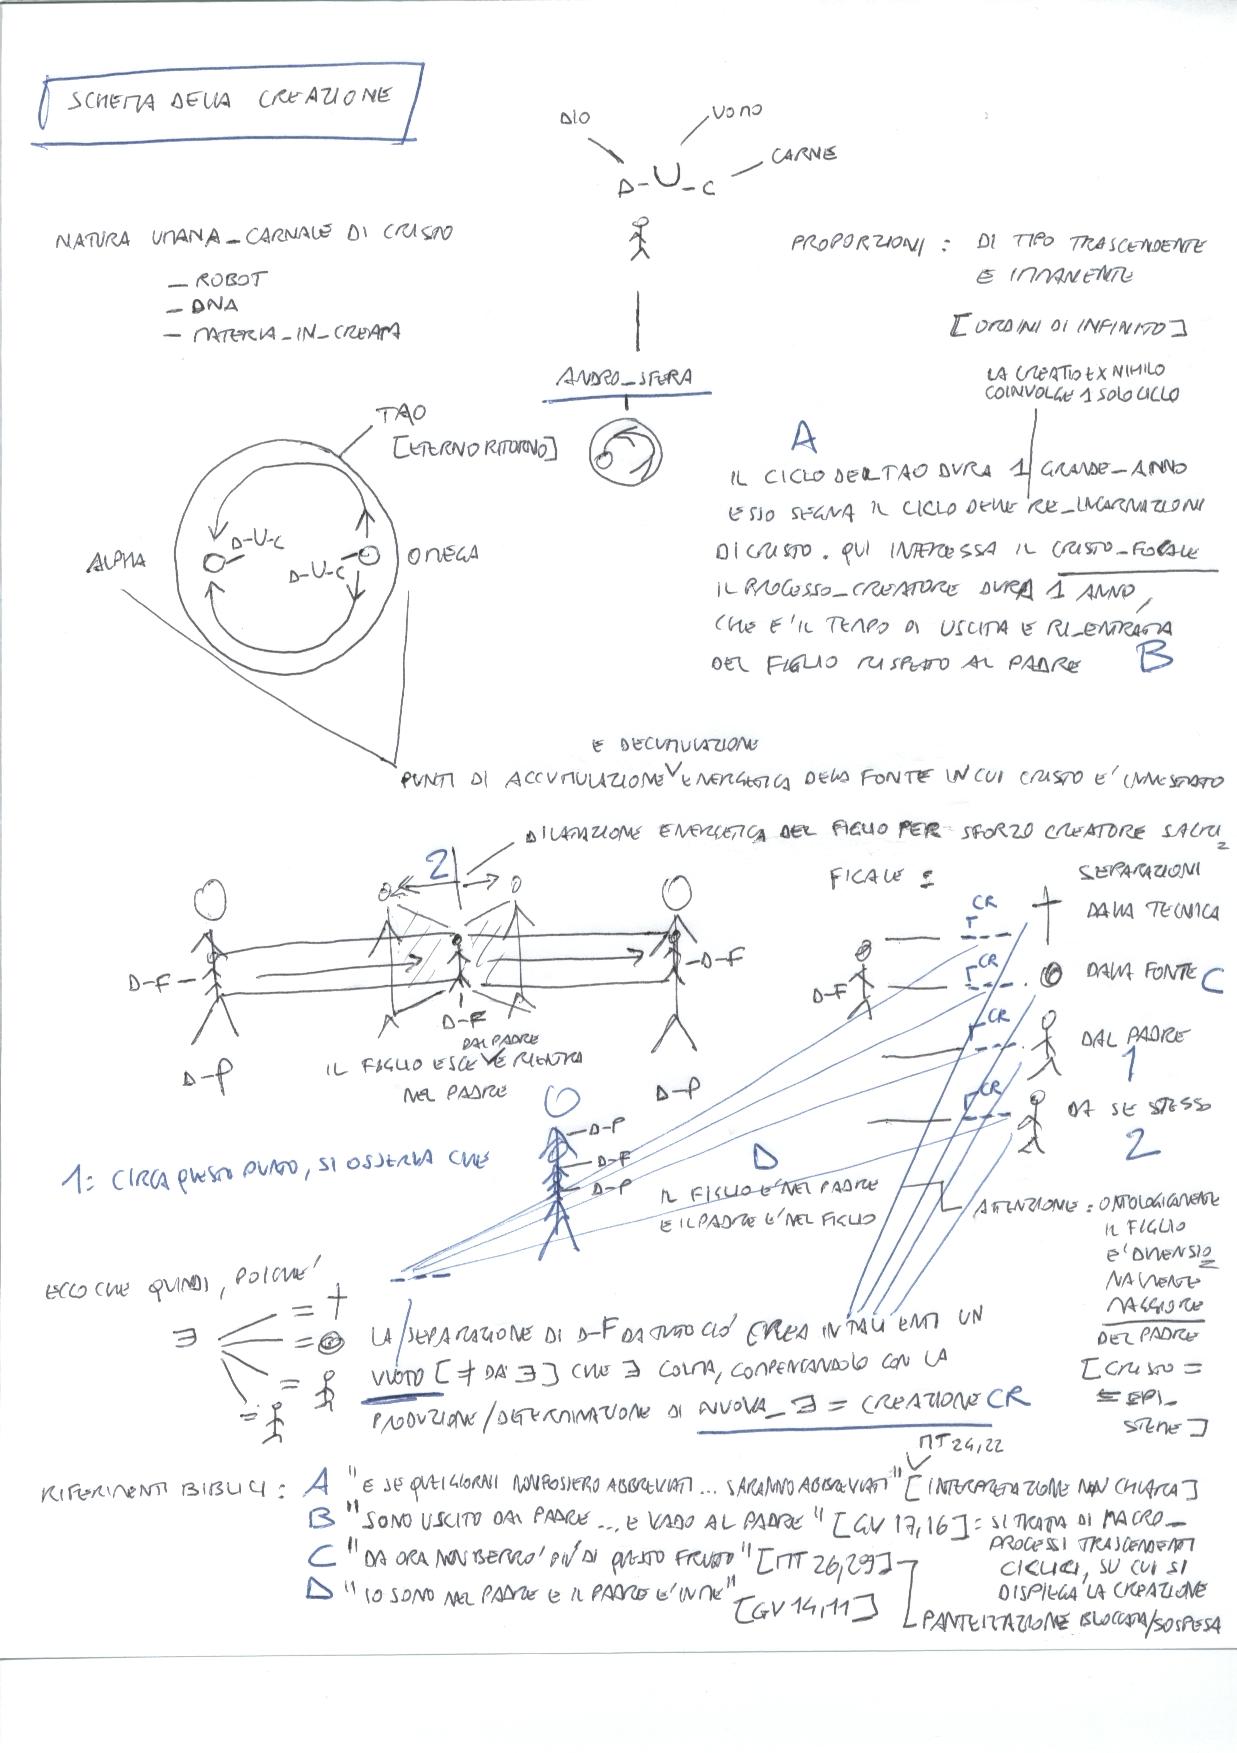 SCHEMA DELLA CREAZIONE
DIO
UOMO
CARNE
D-U-C
NATURA UMANA_CARNALE DI CRISTO
- ROBOT
- DNA
- MATERIA_IN_CREATA
PROPORZIONI : DI TIPO TRASCENDENTE
E IMMANENTE
[ORDINI DI INFINITO]
LA CREATIO EX NIHILO
COINVOLGE 1 SOLO CICLO
ANDRO_SFERA
TAO
[ETERNO RITORNO]
ALPHA
D-U-C
D-U-C
OMEGA
A
IL CICLO DEL TAO DURA 1 GRANDE_ANNO
ESSO SEGNA IL CICLO DELLE RE_INCARNAZIONI
DI CRISTO. QUI INTERESSA IL CRISTO_FOCALE
IL PROCESSO_CREATORE DURA 1 ANNO,
CHE E' IL TEMPO DI USCITA E RI_ENTRATA
DEL FIGLIO RISPETTO AL PADRE B
E DECUMULAZIONE
PUNTI DI ACCUMULAZIONE V ENERGETICA DELLA FONTE IN CUI CRISTO E' INNESTATO
DILATAZIONE ENERGETICA DEL FIGLIO PER SFORZO CREATORE
2
FICALE
SEPARAZIONI
CR
DALLA TECNICA
CR
DALLA FONTE C
D-F
CR
DAL PADRE
1
CR
DA SE STESSO
2
D-F
D-P
D-F
D-F
D-P
DAL PADRE
IL FIGLIO ESCE V E RIENTRA
NEL PADRE
1: CIRCA QUESTO PUNTO, SI OSSERVA CHE
D-P
D-F
D-P
D
IL FIGLIO E' NEL PADRE
E IL PADRE E' NEL FIGLIO
ATTENZIONE : ONTOLOGICAMENTE
IL FIGLIO
E' DIMENSIO
NALMENTE
MAGGIORE
DEL PADRE
[CRISTO =
= EPI_
STEME]
ECCO CHE QUINDI, POICHE'
∃
= †
=
=
=
LA SEPARAZIONE DI D-F DA TUTTO CIO' CREA IN TALI ENTI UN
VUOTO [≠ DA ∃] CHE ∃ COLMA, COMPENSANDOLO CON LA
PRODUZIONE/DETERMINAZIONE DI NUOVA_∃ = CREAZIONE CR
MT 24,22
RIFERIMENTI BIBLICI : A "E SE QUEI GIORNI NON FOSSERO ABBREVIATI... SARANNO ABBREVIATI" [INTERPRETAZIONE NON CHIARA]
B "SONO USCITO DAL PADRE ... E VADO AL PADRE" [GV 17,16] : SI TRATTA DI MACRO_
PROCESSI TRASCENDENTI
CICLICI, SU CUI SI
DISPIEGA LA CREAZIONE
C "DA ORA NON BERRO' PIU' DI QUESTO FRUTTO" [MT 26,29]
D "IO SONO NEL PADRE E IL PADRE E' IN ME"
[GV 14,11]
PANTEIZZAZIONE BLOCCATA/SOSPESA